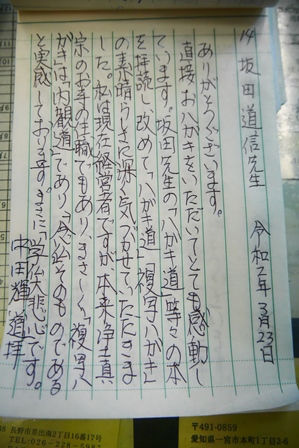 14 坂田道信先生 令和2年3月23日
ありがとうございます。
直接おハガキをいただいてとても感動し
ています。坂田先生の「ハガキ道」等々の本
を拝読し、改めて「ハガキ道」「複写ハガキ」
の素晴らしさに深く気づかせていただきま
した。私は現在経営者ですが、本来浄土真
宗のお寺の住職でもあり、まさしく、「複写ハ
ガキ」は「内観道」であり、「念仏」そのものである
と実感しております。まさに「学仏大悲心」です。
中田輝道拝
長野市差出南2丁目16番17号
TEL:026-228-5987
〒491-0859
愛知県一宮市本町1丁目2-5